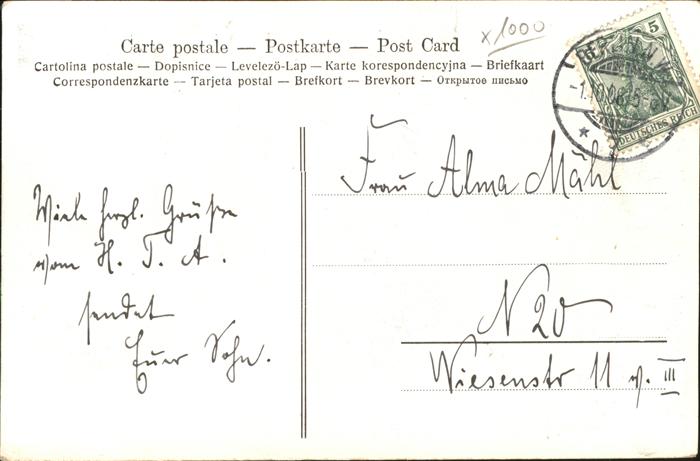 Carte postale — Postkarte — Post Card
Cartolina postale — Dopisnice — Levelező-Lap — Karte korespondencyjna — Briefkaart
Correspondenzkarte — Tarjeta postal — Brefkort — Brevkort — Открытое письмо
x1000
5
DEUTSCHES REICH
Viele herzl. Grüße
vom H. T. A.
sendet
Euer Sohn.
Frau Alma Mühl
N 20
Wiesenstr 11 v. III